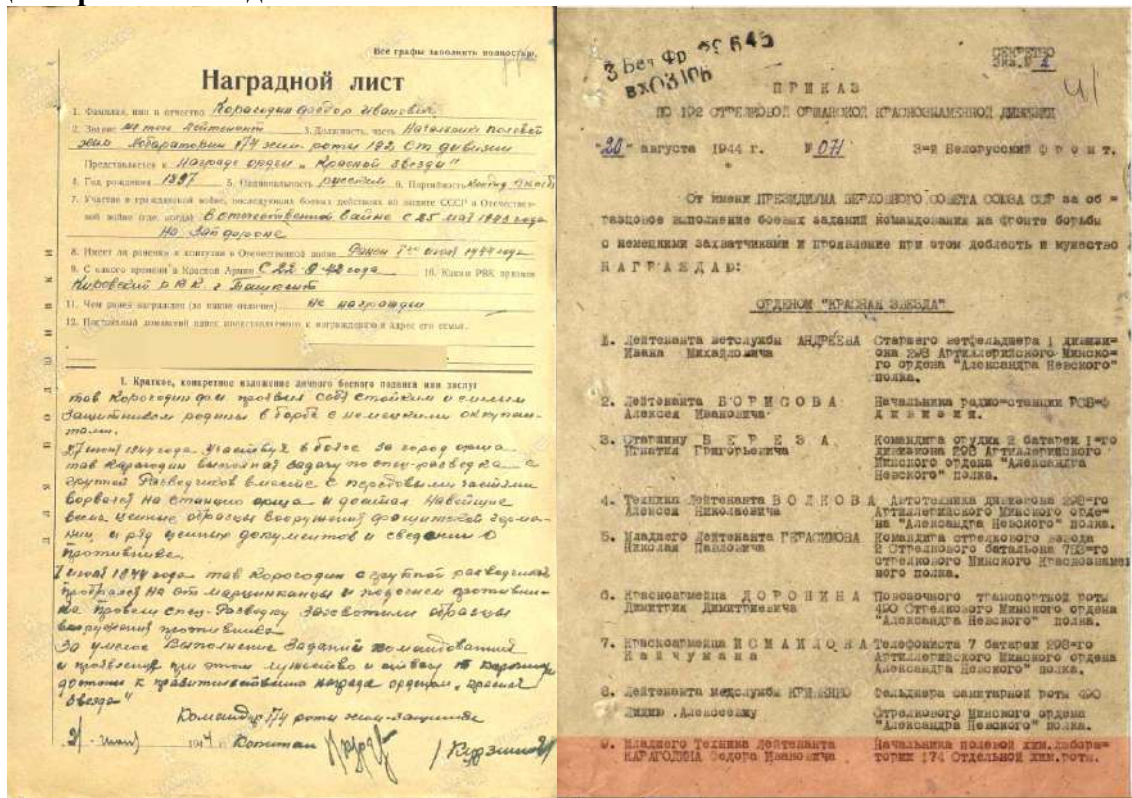 Все графы заполнить полностью.
Наградной лист
1. Фамилия, имя и отчество Корагодин Федор Иванович
2. Звание Мл тех Лейтенант 3. Должность, часть Начальник полевой
хим Лаборатории 174 хим. роты 192 Ст дивизии
Представляется к Награде орден „Красной Звезды"
4. Год рождения 1897 5. Национальность русский 6. Партийность Кандид. ВКП(б)
7. Участие в гражданской войне, последующих боевых действиях по защите СССР и Отечествен-
ной войне (где, когда) В отечественной войне с 25 мая 1943 года
На Зап фронте
8. Имеет ли ранения и контузии в Отечественной войне Ранен июля 1944 года
9. С какого времени в Красной Армии С 22-9-42 года 10. Каким РВК призван
Кировский РВК г Ташкент
11. Чем ранее награжден (за какие отличия) Не награжден
12. Постоянный домашний адрес представляемого к награждению и адрес его семьи.
I. Краткое, конкретное изложение личного боевого подвига или заслуг
тов Корогодин проявил себя стойким и смелым
Защитником родины в борьбе с немецкими оккупан-
тами.
27 июня 1944 года участвуя в боях за город орша
тов Карагодин выполняя задачу по спец-разведке с
группой Разведчиков вместе с передовыми частями
Ворвался на станцию орша и достал Новейшие
весьма ценные образцы вооружения фашисткой Герма-
нии, и ряд ценных документов и сведении о
противнике.
июля 1944 года тов Корогодин с группой разведчиков
пробрался на ст марцинканцы и подносом противни-
ка провели спец-Разведку Захватили образцы
вооружения противника
За умелое Выполнение Заданий командования
и проявленные при этом мужество и отвагу т Корогодин
достоин к правительственной награде орденом „красная
Звезда"
Командир 174 роты хим-защиты
1944 Капитан
3 Бел Фр
вх03106
СЕКРЕТНО
ЭКЗ.№
41
ПРИКАЗ
ПО 192 СТРЕЛКОВОЙ ОРШАНСКОЙ КРАСНОЗНАМЕННОЙ ДИВИЗИИ
"20" августа 1944 г. № 071 3-й Белорусский фронт.
От имени ПРЕЗИДИУМА ВЕРХОВНОГО СОВЕТА СОЮЗА ССР за об =
разцовое выполнение боевых заданий командования на фронте борьбы
с немецкими захватчиками и проявленные при этом доблесть и мужество
НАГРАЖДАЮ:
ОРДЕНОМ "КРАСНАЯ ЗВЕЗДА"
1. Лейтенанта ветслужбы АНДРЕЕВА Старшего ветфельдшера 1 дивизи-
Ивана Михайловича она 298 Артиллерийского Минско-
го ордена "Александра Невского"
полка.
2. Лейтенанта БОРИСОВА Начальника радио-станции РСБ-Ф
Алексея Ивановича дивизии.
3. Старшину БЕРЕЗА Командира орудия 2 батареи 1-го
Игнатия Григорьевича дивизиона 298 Артиллерийского
Минского ордена "Александра
Невского" полка.
4. Техника Лейтенанта ВОЛКОВА Автотехника дивизиона 298-го
Алексея Николаевича Артиллерийского Минского орде-
на "Александра Невского" полка.
5. Младшего Лейтенанта ГЕРАСИМОВА Командира стрелкового взвода
Николая Павловича 2 Стрелкового батальона 753-го
стрелкового Минского Краснознамен
ного полка.
6. Красноармейца ДОРОНИНА Повозочного транспортной роты
Димитрия Димитриевича 490 Стрелкового Минского ордена
"Александра Невского" полка.
7. Красноармейца ИСМАИЛОВА Телефониста 7 батареи 298-го
Кайчумана Артиллерийского Минского ордена
"Александра Невского" полка.
8. Лейтенанта медслужбы Фельдшера санитарной роты 490
Лидию Алексеевну Стрелкового Минского ордена
"Александра Невского" полка.
9. Младшего Техника Лейтенанта Начальника полевой хим.лабора=
КАРАГОДИНА Федора Ивановича тории 174 Отдельной хим.роты.